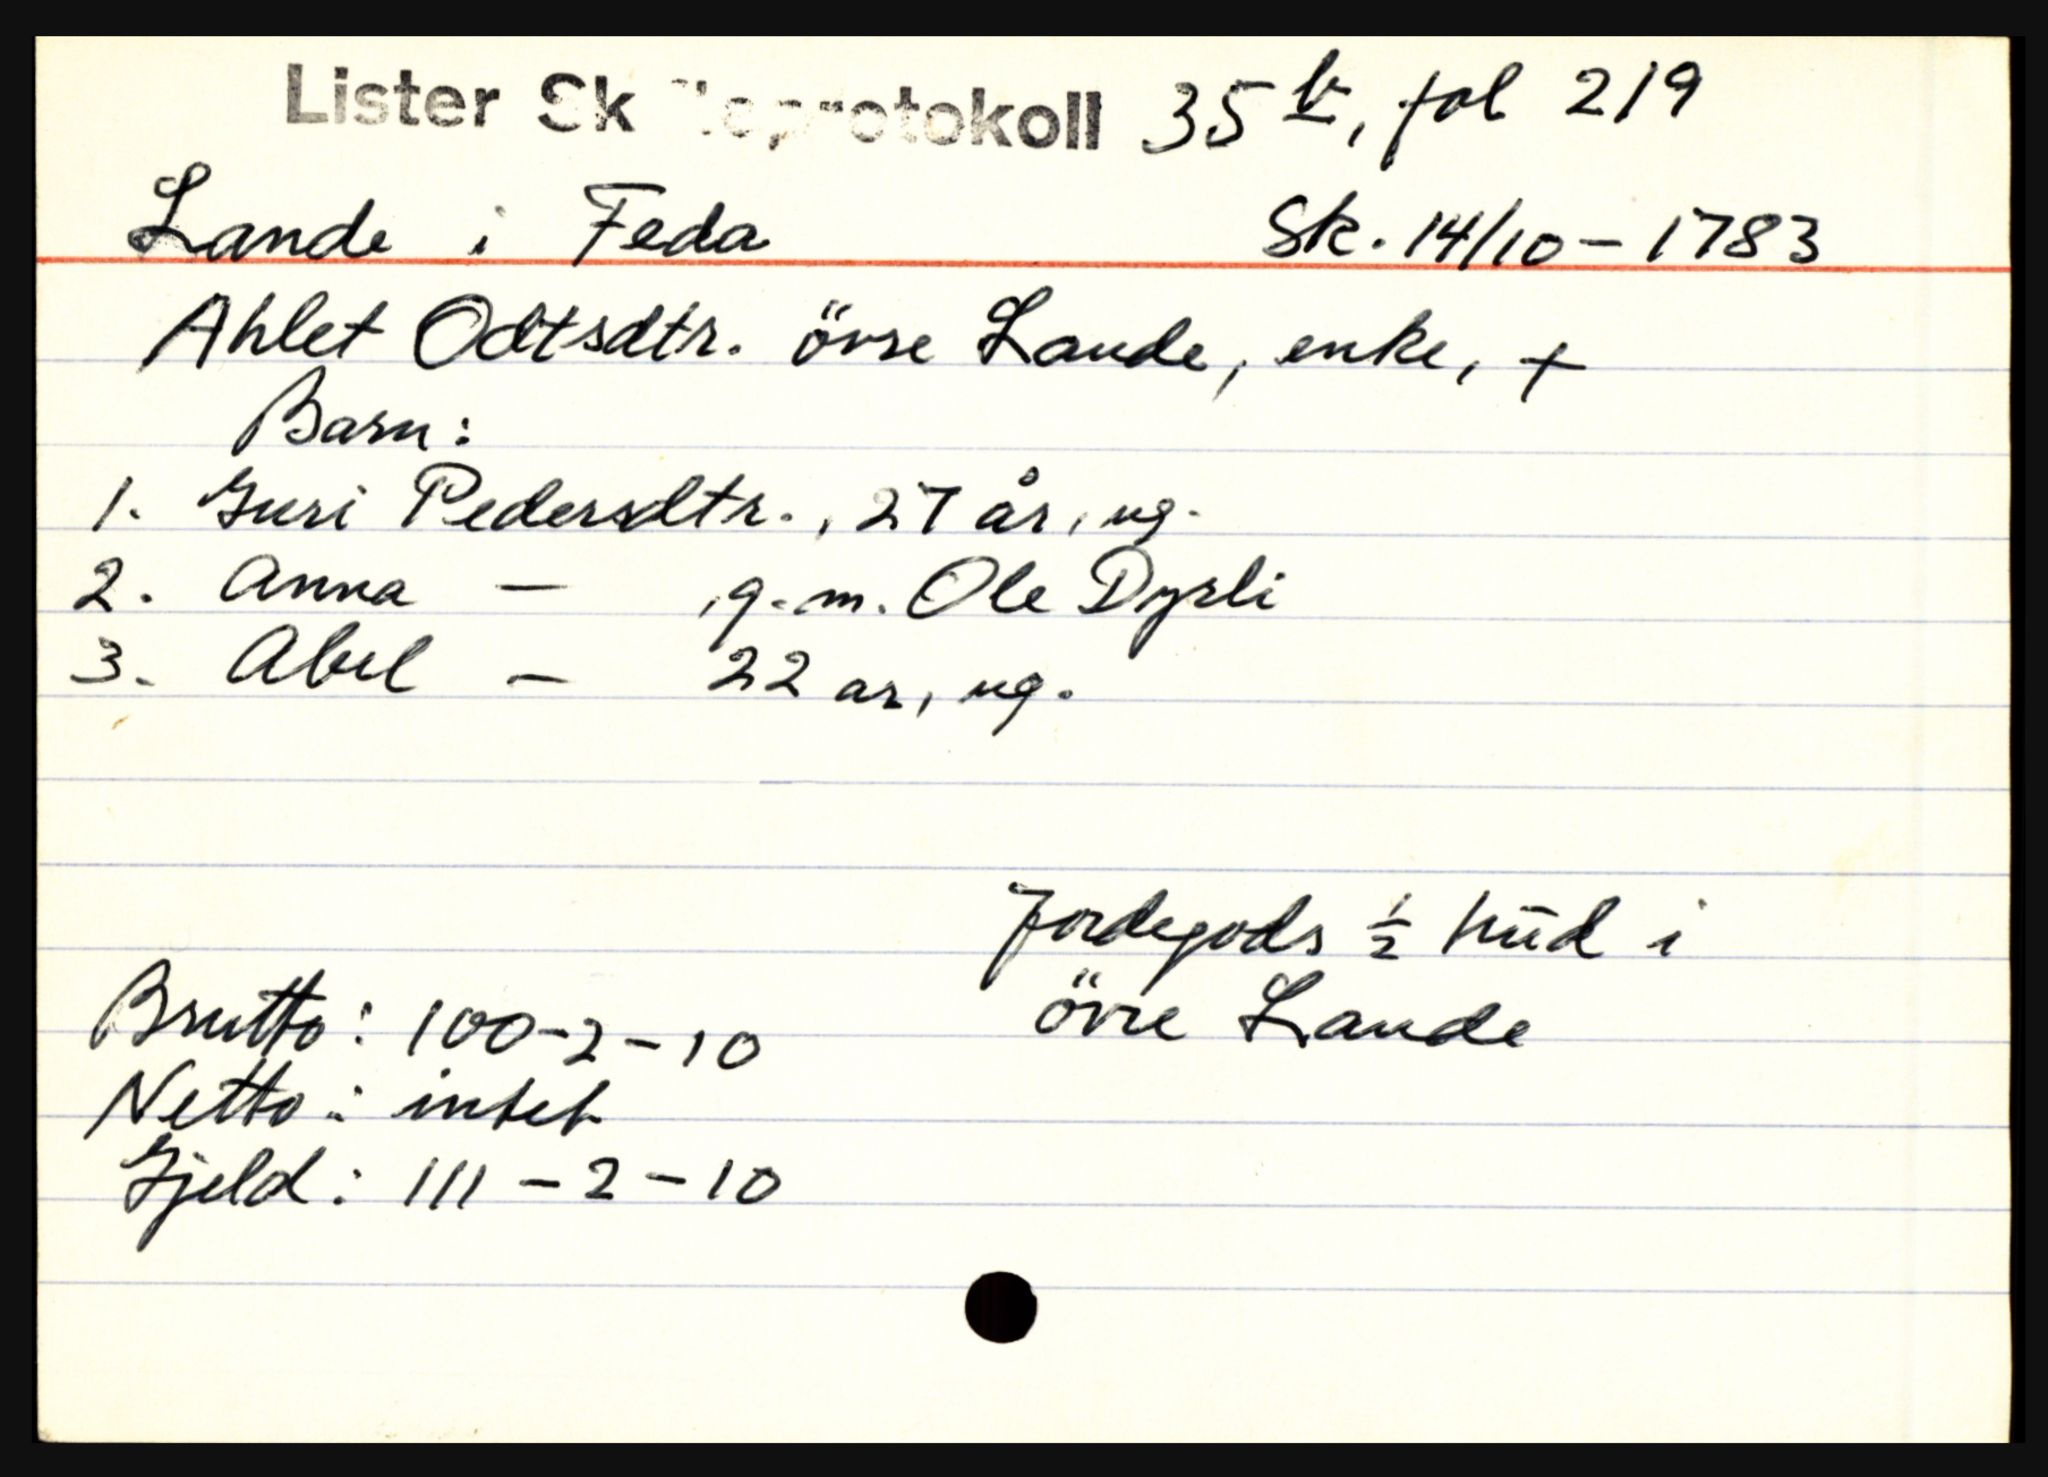 Lister Skifteprotokoll 35 b, fol 219
Lande i Feda Sk. 14/10 - 1783
Ahlet Odtsdtr. övre Lande, enke, +
Barn:
1. Guri Pedersdtr., 27 år, ug.
2. Anna — , g. m. Ole Dyrli
3. Abel — 22 ar, ug.
Jordegods 1/2 hūd i
övre Lande
Brutto: 100-2-10
Netto: intet
Gjeld: 111-2-10